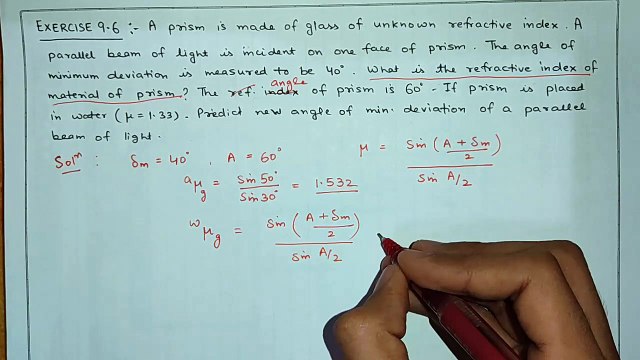 EXERCISE 9.6 :- A prism is made of glass of unknown refractive index. A
parallel beam of light is incident on one face of prism. The angle of
minimum deviation is measured to be 40°. What is the refractive index of
material of prism? The ref. index angle of prism is 60°. If prism is placed
in water (μ = 1.33). Predict new angle of min. deviation of a parallel
beam of light.
Solⁿ : δm = 40° , A = 60° μ = sin (A + δm / 2) / sin A/2
aμg = sin 50° / sin 30° = 1.532
wμg = sin (A + δm / 2) / sin A/2